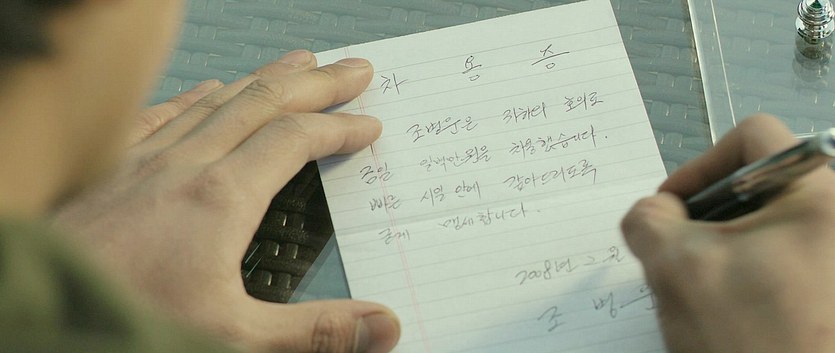 차 용 증
조병운은 귀하의 호의로
금일 일백만원을 차용했습니다.
빠른 시일 안에 갚아드리도록
굳게 맹세합니다.
2008년 2월
조 병 운